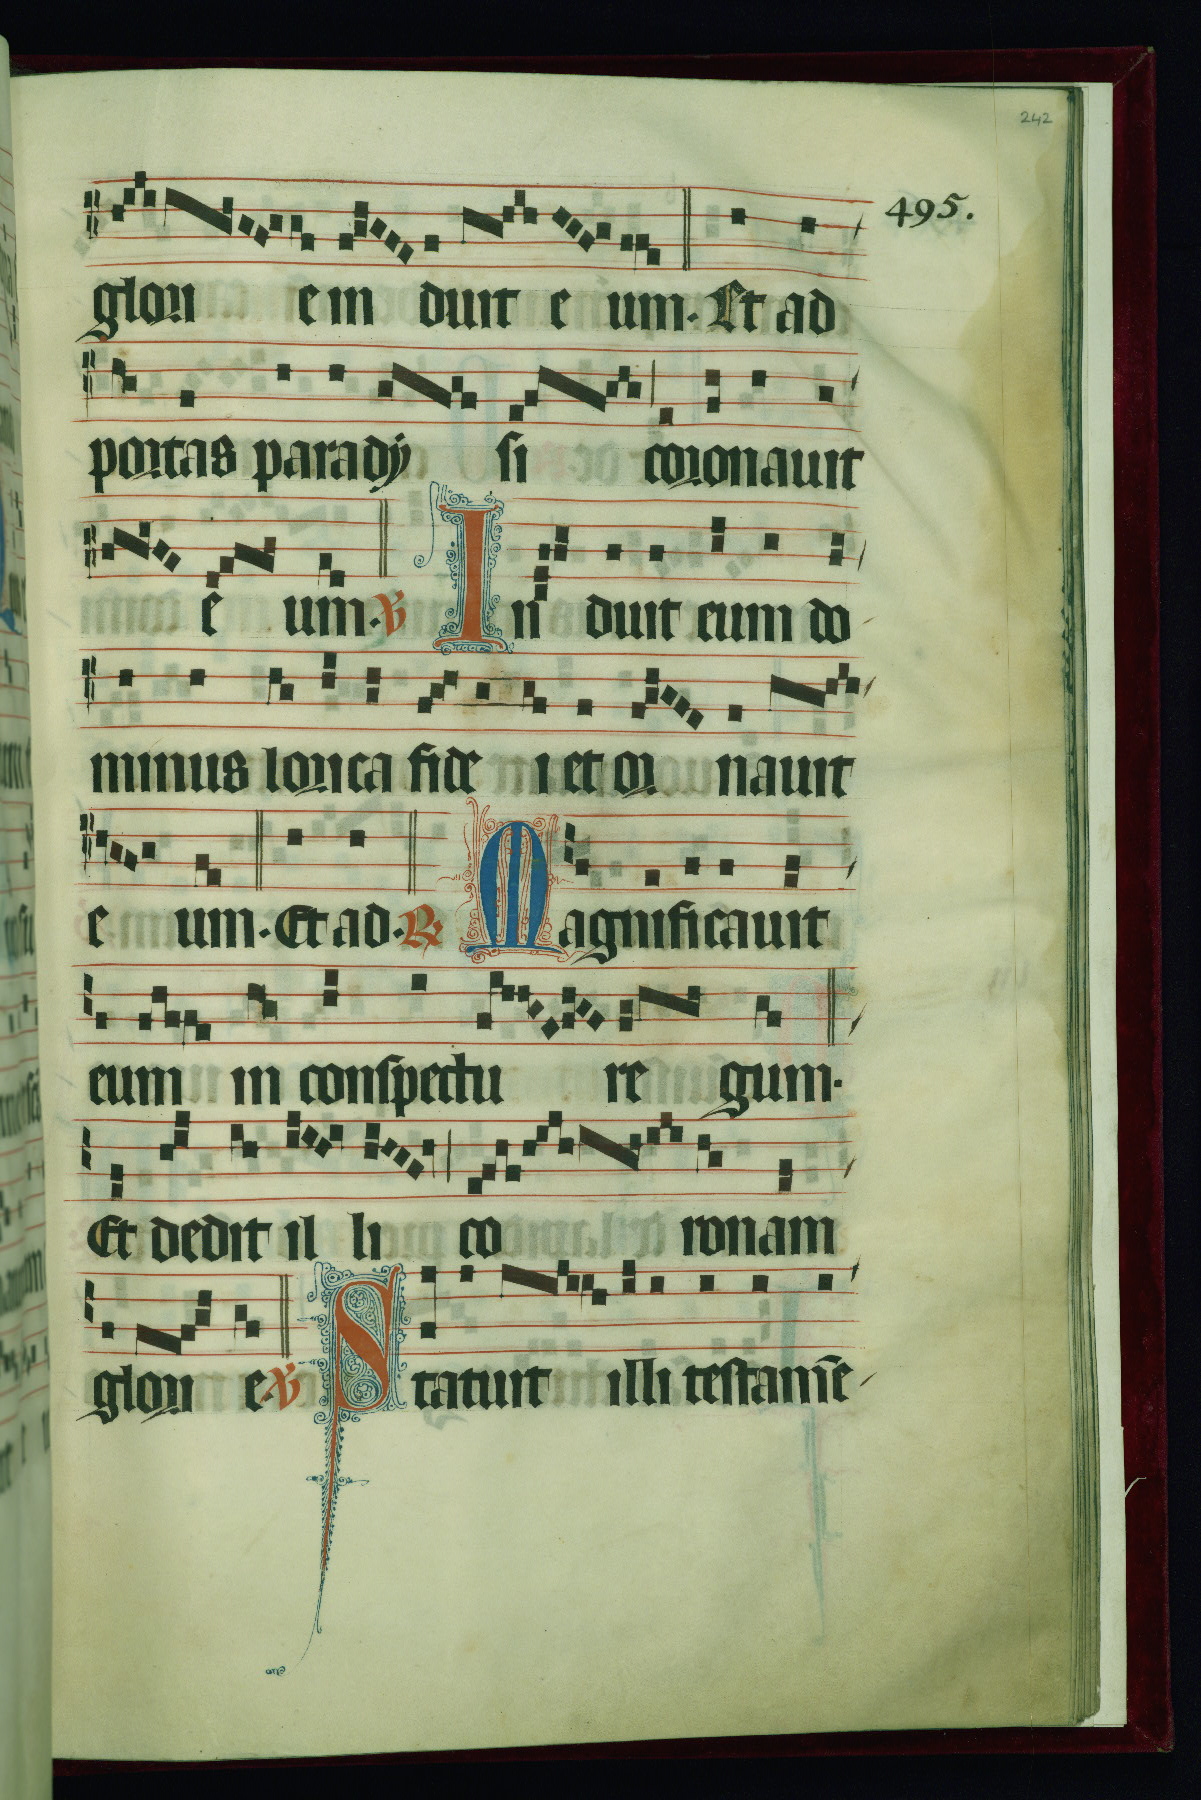 242
495.
glori e in duit e um. Et ad
portas paradÿ si coronauit
e um. ℣ In duit eum do
minus lorica fide i et or nauit
e um. Et ad. ℟ Magnificauit
eum in conspectu re gum.
Et dedit il li co ronam
glori e ℣ Statuit illi testam̄e